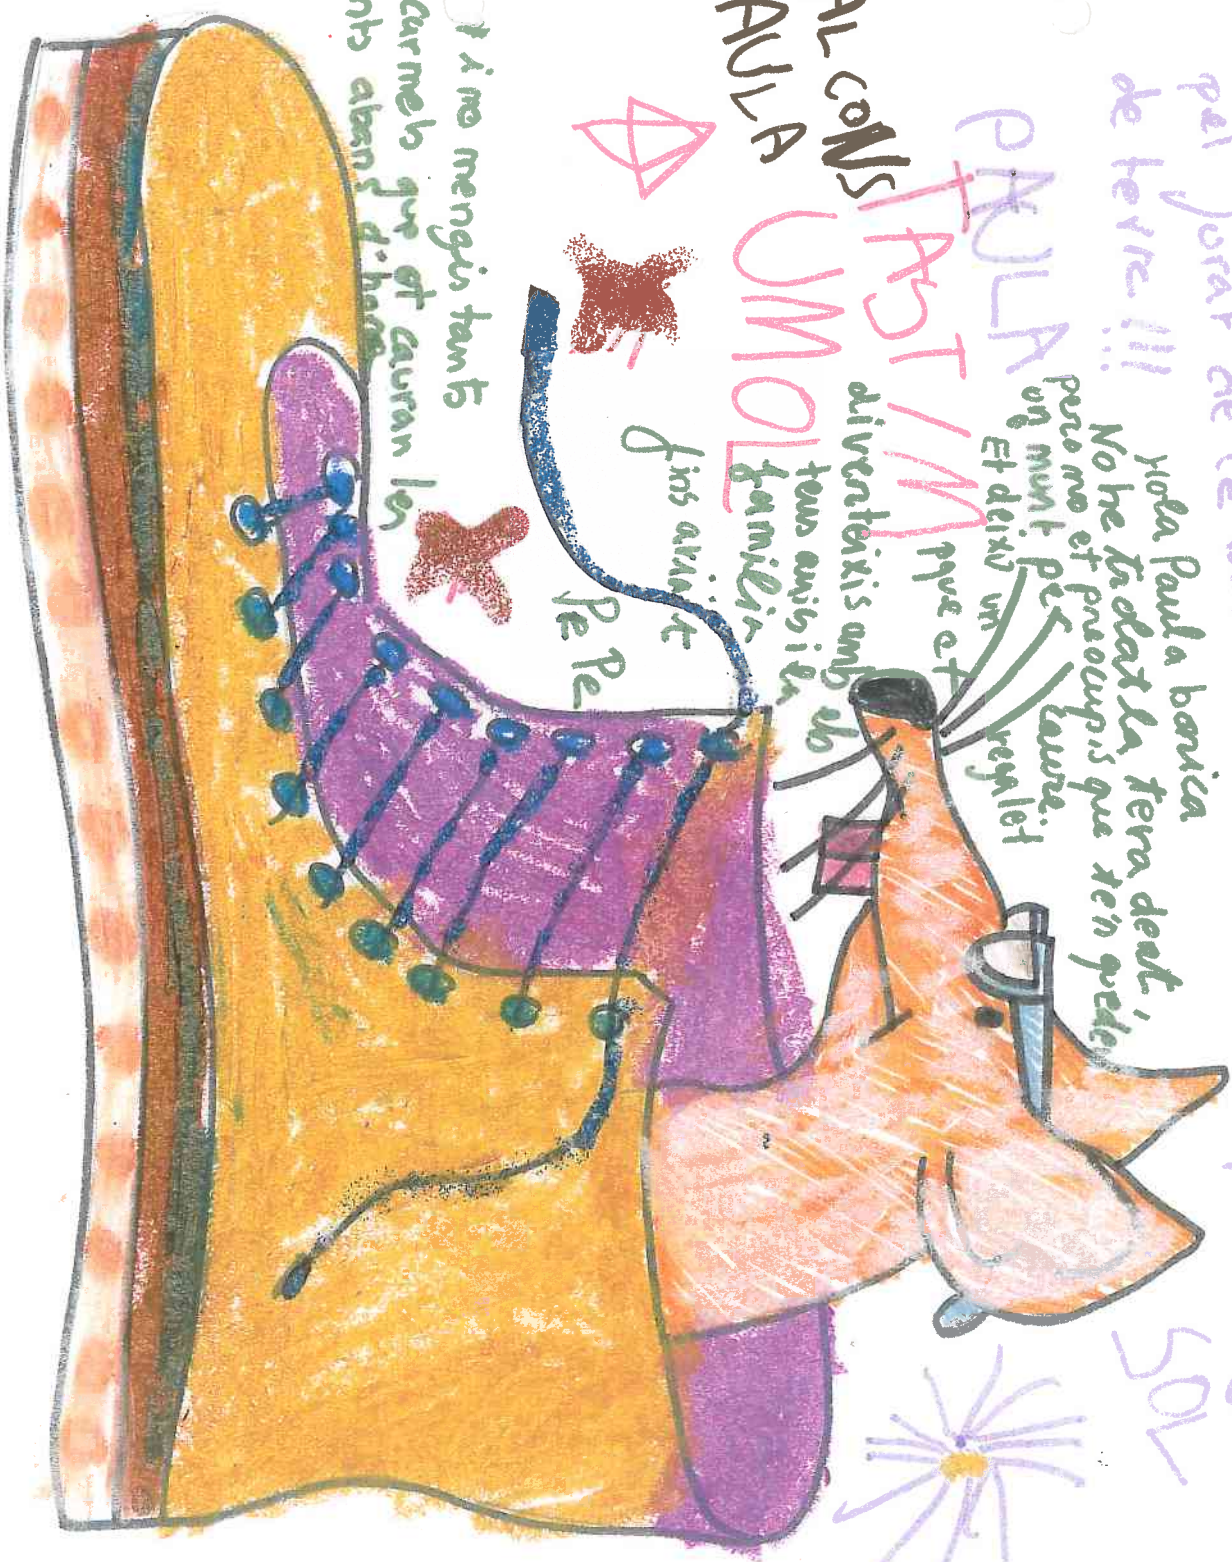 de terre !!!!
PAULA
SOL
Hola Paula bonica
No he trobat la teva dent,
pero no et preocupis que te'n
un munt per caure.
Et deixo un regalet
pque et
diverteixis amb els
teus amis i la
familia
fins aviat
Pe Pe
T ASTIM
UMOL
AL CONS
AULA
i no mengis tants
carmels que et cauran les
abans d'hora